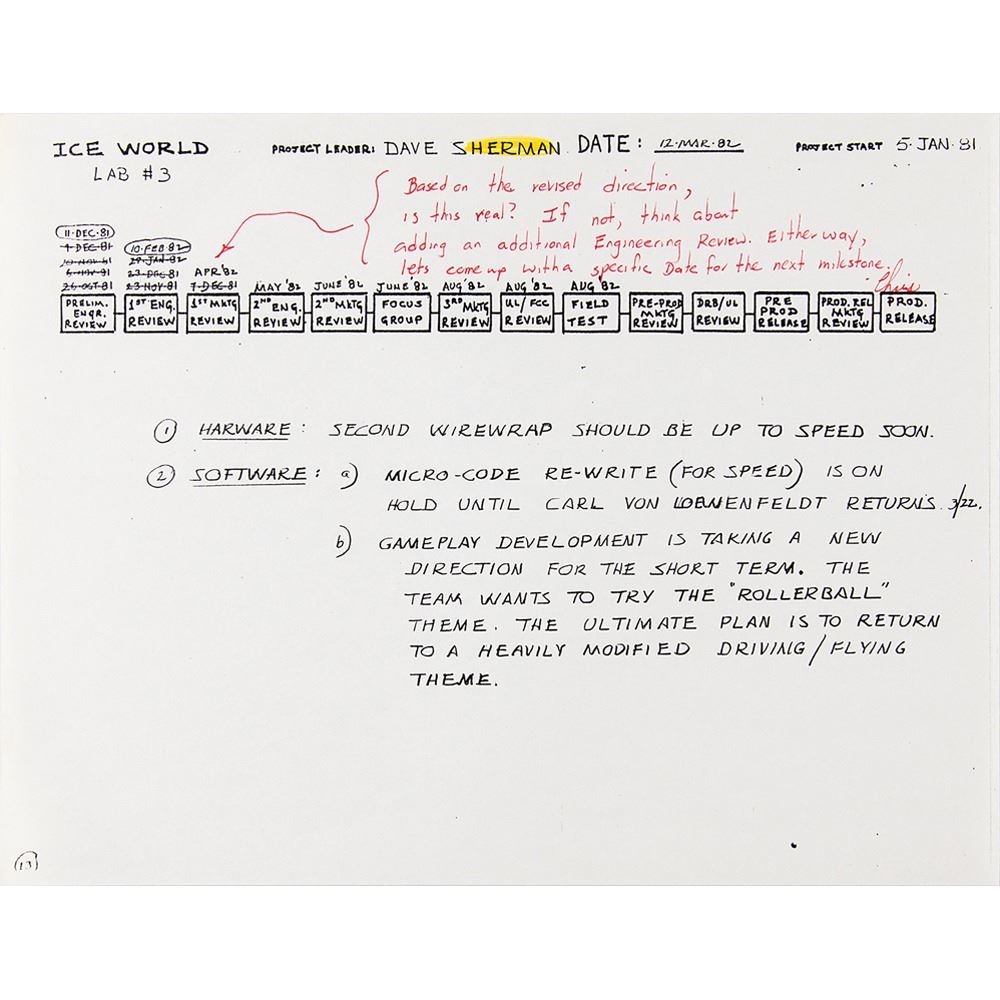 ICE WORLD PROJECT LEADER: DAVE SHERMAN DATE: 12·MAR·82 PROJECT START 5·JAN·81
LAB #3
Based on the revised direction,
is this real? If not, think about
adding an additional Engineering Review. Either way,
lets come up with a specific Date for the next milestone.
Chris
11·DEC·81
4·DEC·81 10·FEB·82
29·JAN·82
6·NOV·81 23·DEC·81 APR '82
26·OCT·81 23·NOV·81 7·DEC·81 MAY '82 JUNE '82 JUNE '82 AUG '82 AUG '82 AUG '82
PRELIM. ENGR. REVIEW
1ST ENG. REVIEW
1ST MKTG REVIEW
2ND ENG. REVIEW
2ND MKTG REVIEW
FOCUS GROUP
3RD MKTG REVIEW
UL/FCC REVIEW
FIELD TEST
PRE-PROD MKTG REVIEW
DRB/UL REVIEW
PRE PROD RELEASE
PROD. REL MKTG REVIEW
PROD. RELEASE
1 HARWARE: SECOND WIREWRAP SHOULD BE UP TO SPEED SOON.
2 SOFTWARE: a) MICRO-CODE RE-WRITE (FOR SPEED) IS ON
HOLD UNTIL CARL VON LOEWENFELDT RETURNS. 3/22.
b) GAMEPLAY DEVELOPMENT IS TAKING A NEW
DIRECTION FOR THE SHORT TERM. THE
TEAM WANTS TO TRY THE "ROLLERBALL"
THEME. THE ULTIMATE PLAN IS TO RETURN
TO A HEAVILY MODIFIED DRIVING/FLYING
THEME.
13